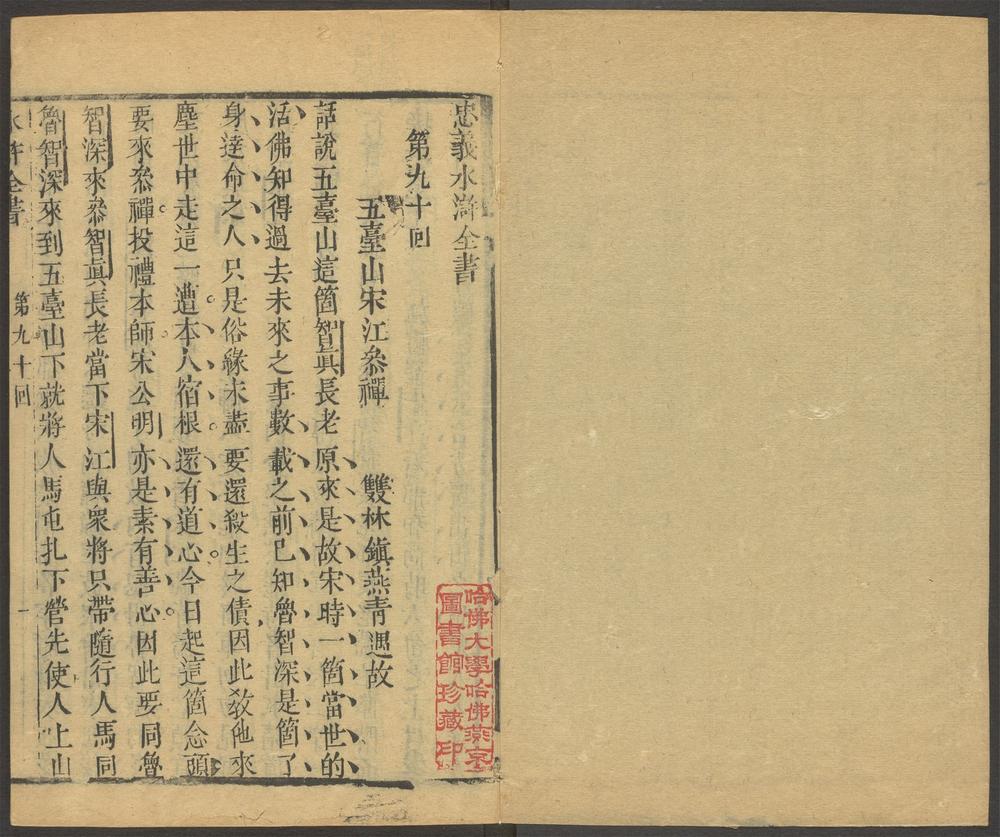 忠義水滸全書
第九十回
五臺山宋江叅禪　雙林鎮燕青遇故
話說五臺山這箇智真長老原來是故宋時一箇當世的
活佛知得過去未來之事數載之前已知魯智深是箇了
身達命之人只是俗緣未盡要還殺生之債因此教他來
塵世中走這一遭本人宿根還有道心今日起這箇念頭
要來叅禪投禮本師宋公明亦是素有善心因此要同魯
智深來叅智真長老當下宋江與衆將只帶隨行人馬同
魯智深來到五臺山下就將人馬屯扎下營先使人上山
水滸全書　第九十回　一
哈佛大學哈佛燕京
圖書館珍藏印